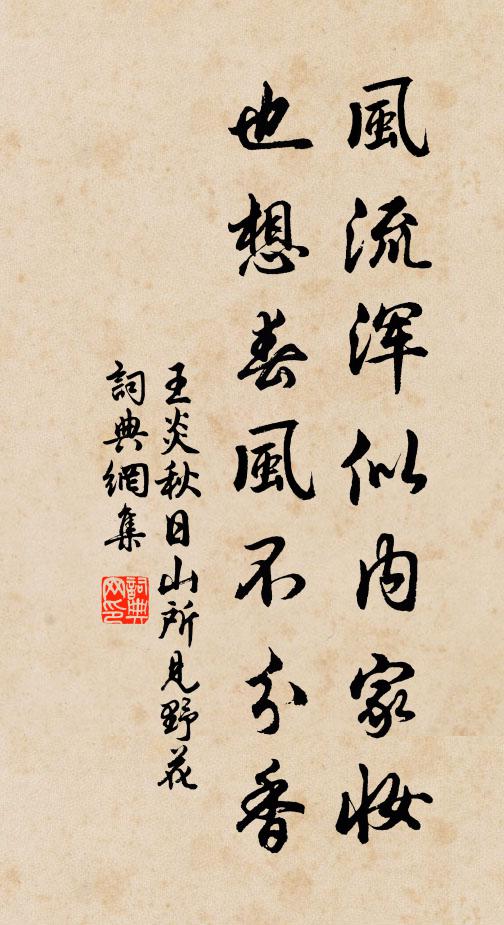 風流浑似内家妝
也想春風不分香
王炎秋日山所見野花
詞典網集
詞典网印